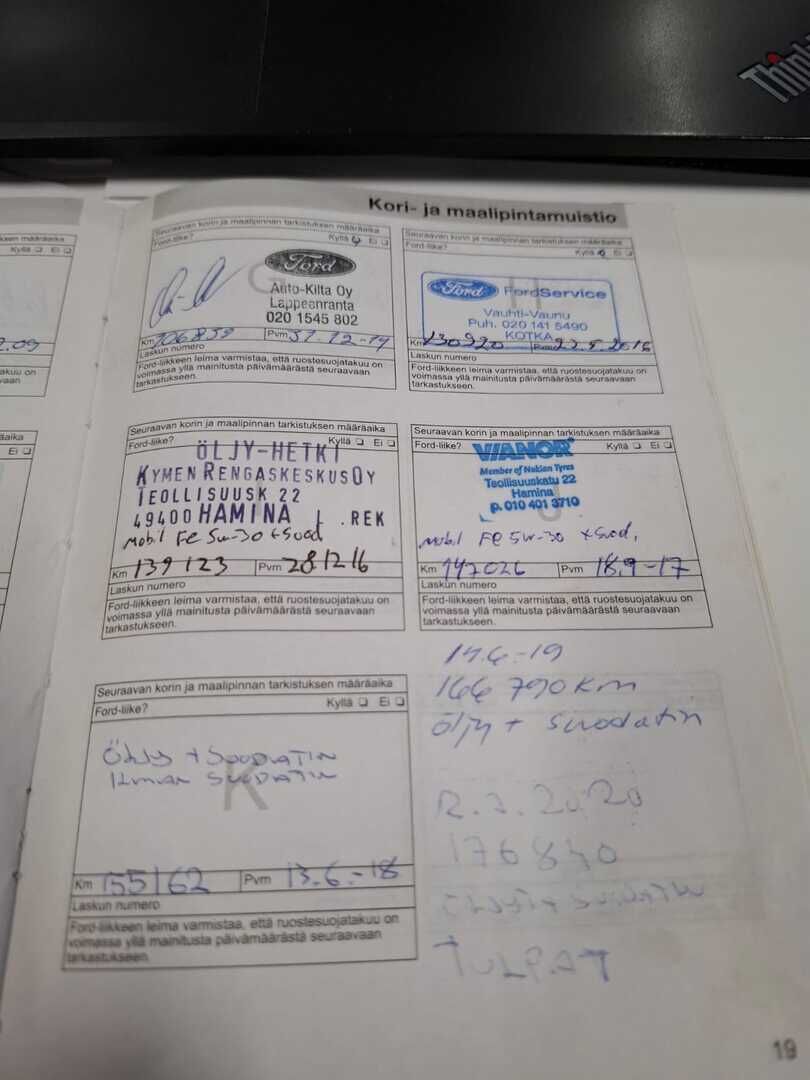 Think
Kori- ja maalipintamuistio
määräaika
Kyllä ❏ Ei ❏
.09
Seuraavan korin ja maalipinnan tarkistuksen määräaika
Ford-liike? Kyllä Ei ❏
G
Ford
Auto-Kilta Oy
Lappeenranta
020 1545 802
Km 106859 Pvm 31.12-14
Laskun numero
Ford-liikkeen leima varmistaa, että ruostesuojatakuu on
voimassa yllä mainitusta päivämäärästä seuraavaan
tarkastukseen.
Seuraavan korin ja maalipinnan tarkistuksen määräaika
Ford-liike? Kyllä Ei ❏
H
Ford FordService
Vauhti-Vaunu
Puh. 020 141 5490
KOTKA
Km 130920 Pvm 22.8.2016
Laskun numero
Ford-liikkeen leima varmistaa, että ruostesuojatakuu on
voimassa yllä mainitusta päivämäärästä seuraavaan
tarkastukseen.
Seuraavan korin ja maalipinnan tarkistuksen määräaika
Ford-liike? Kyllä ❏ Ei ❏
ÖLJY-HETKI
KYMEN RENGASKESKUS OY
TEOLLISUUSK 22
49400 HAMINA .REK
Mobil FE 5w-30 + Suod
Km 139123 Pvm 28.12.16
Laskun numero
Ford-liikkeen leima varmistaa, että ruostesuojatakuu on
voimassa yllä mainitusta päivämäärästä seuraavaan
tarkastukseen.
Seuraavan korin ja maalipinnan tarkistuksen määräaika
Ford-liike? Kyllä ❏ Ei ❏
VIANOR
Member of Nokian Tyres
Teollisuuskatu 22
Hamina
p. 010 401 3710
Mobil FE 5w-30 + Suod.
Km 147026 Pvm 18.9-17
Laskun numero
Ford-liikkeen leima varmistaa, että ruostesuojatakuu on
voimassa yllä mainitusta päivämäärästä seuraavaan
tarkastukseen.
Seuraavan korin ja maalipinnan tarkistuksen määräaika
Ford-liike? Kyllä ❏ Ei ❏
ÖLJY + SUODATIN
ILMAN SUODATIN
K
Km 155162 Pvm 13.6.-18
Laskun numero
Ford-liikkeen leima varmistaa, että ruostesuojatakuu on
voimassa yllä mainitusta päivämäärästä seuraavaan
tarkastukseen.
14.6-19
166 790 km
öljy + suodatin
12.7.2020
176840
ÖLJY + SUODATIN
TULPAT
19